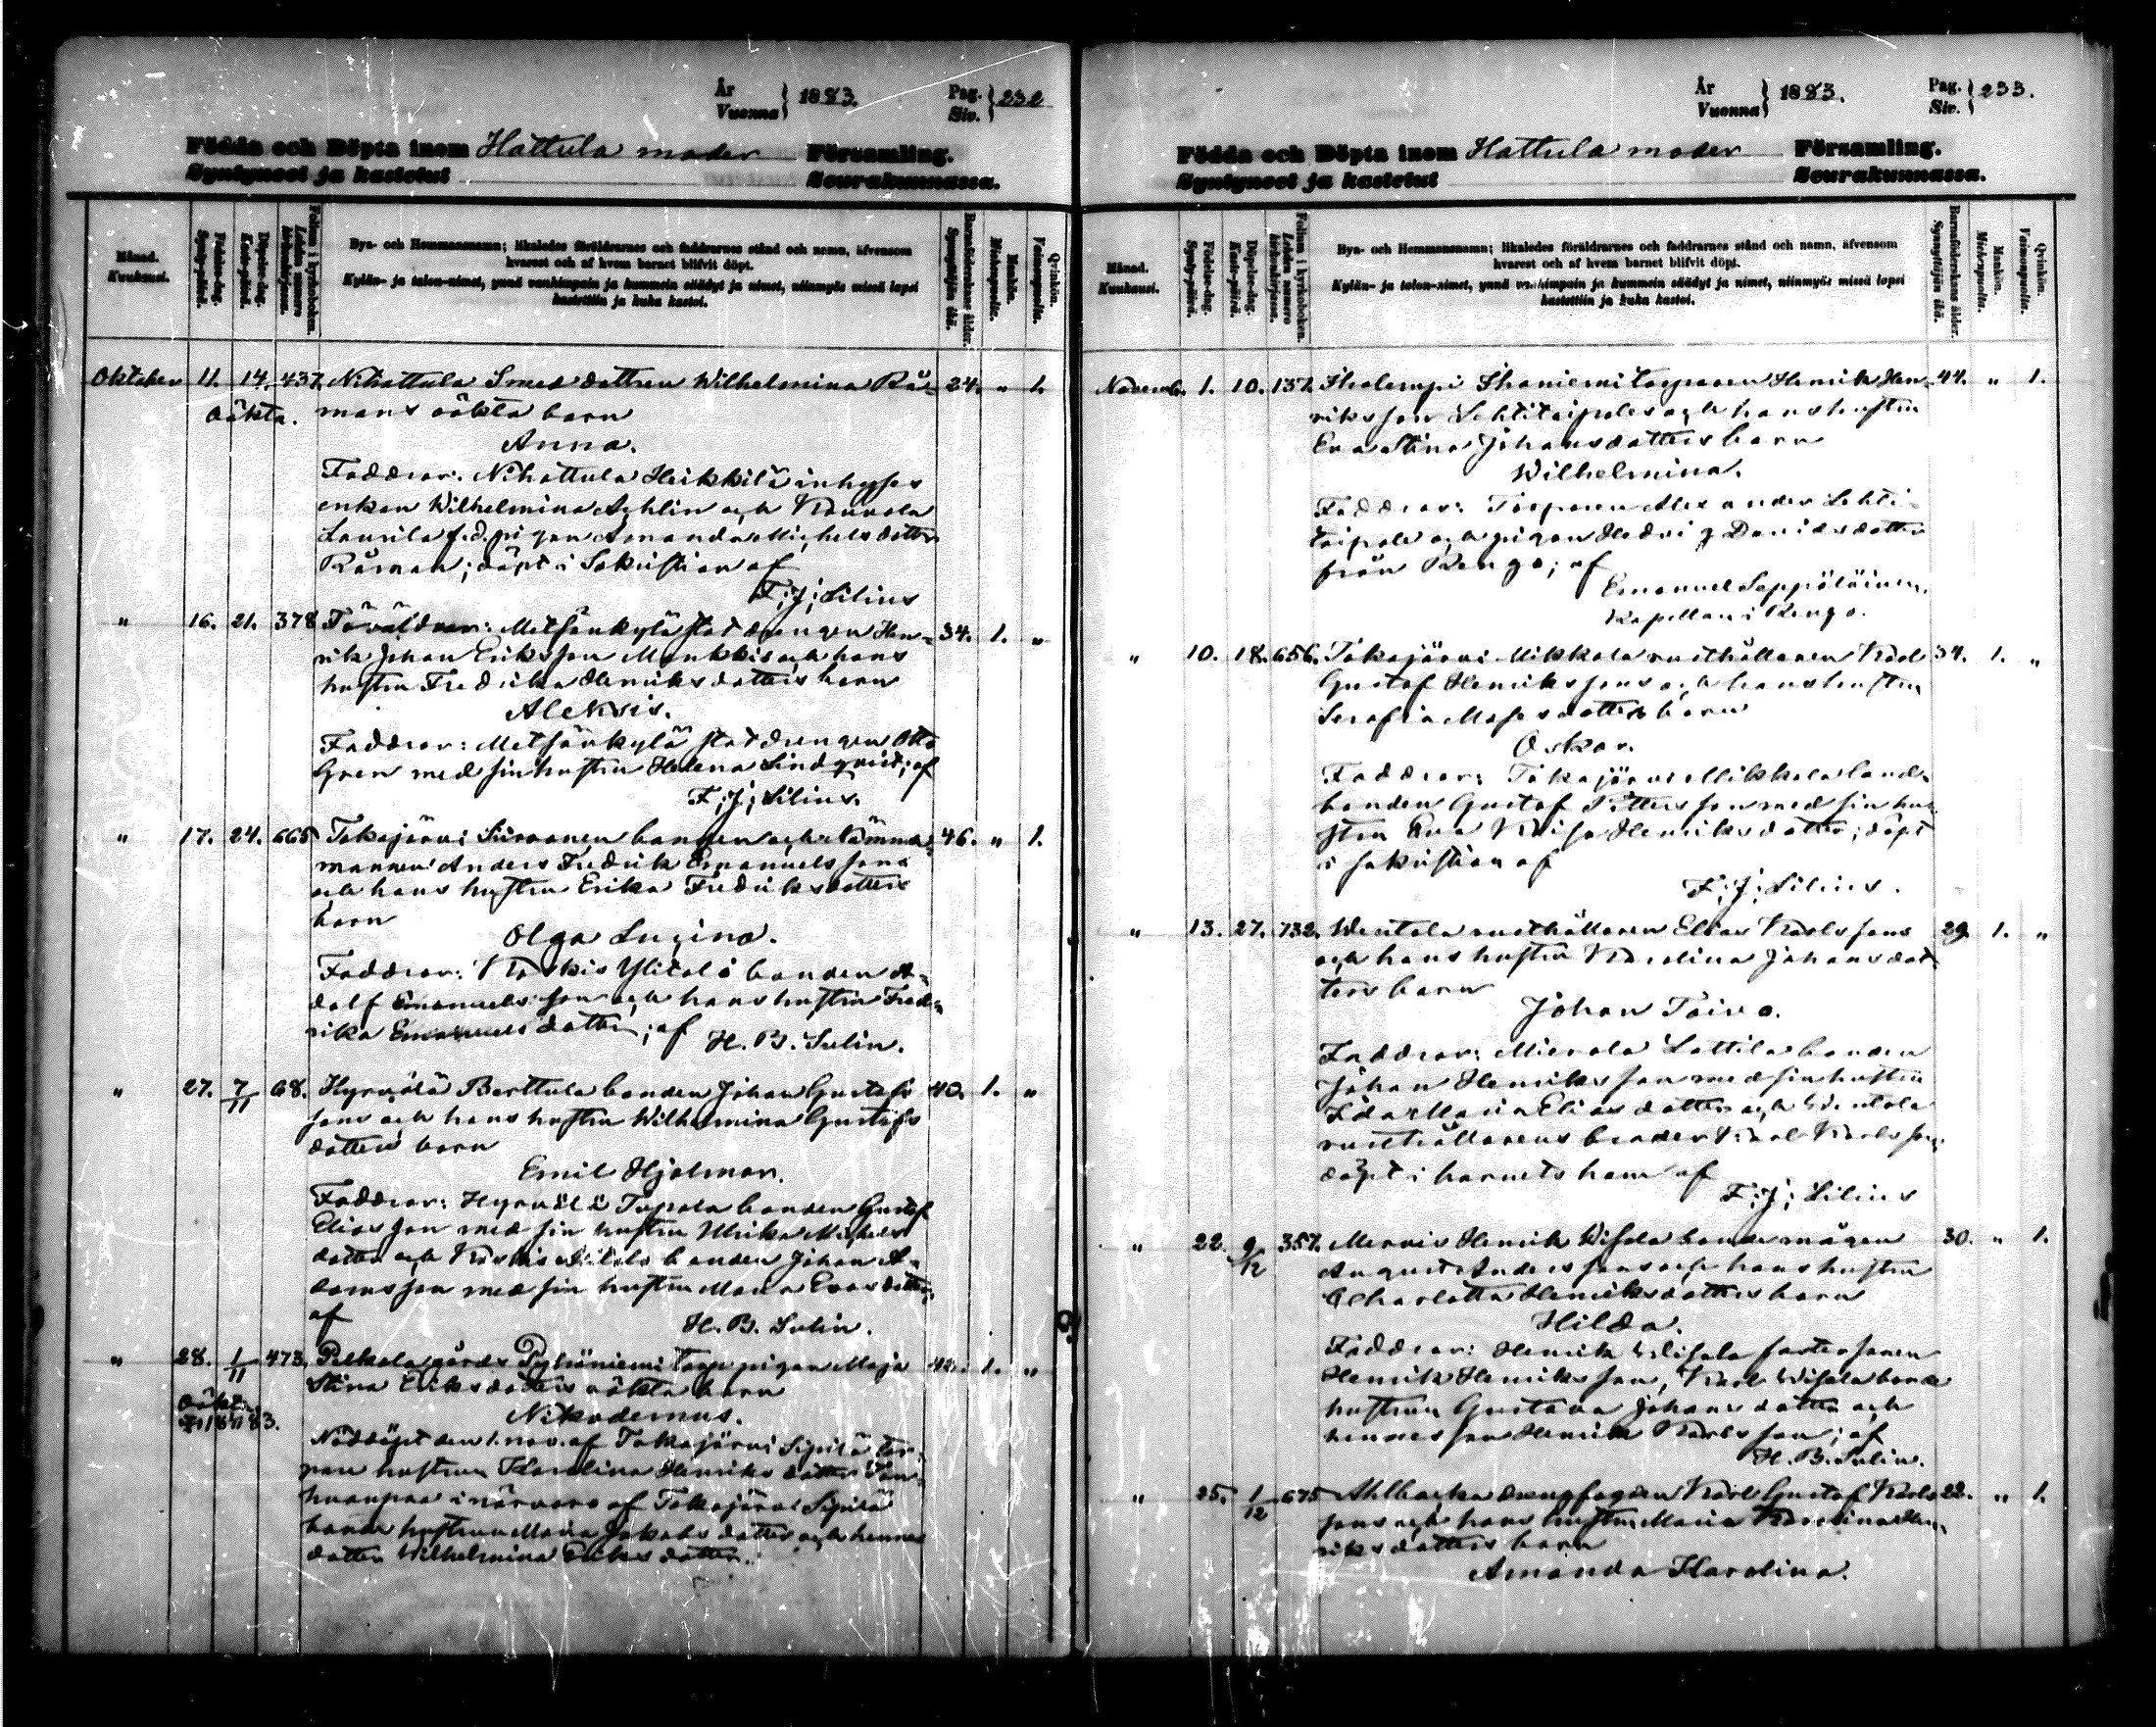 År
Vuonna } 1883. Pag.
Siv. } 232
Födda och Döpta inom Hattula moder Församling.
Syntyneet ja kastetut Seurakunnassa.
Månad.
Kuukausi.
Födelse-dag.
Synty-päivä.
Döpelse-dag.
Kaste-päivä.
Folium i kyrkoboken.
Lehden numero
kirkonkirjassa.
Bya- och Hemmansnamn; likaledes föräldrarnes och faddrarnes stånd och namn, äfvensom
hvarest och af hvem barnet blifvit döpt.
Kylän- ja talon-nimet, ynnä vanhimpain ja kummein säädyt ja nimet, niinmyös missä lapsi
kastettiin ja kuka kastoi.
Barnaföderskans ålder.
Synnyttäjän ikä.
Mankön.
Miehenpuolta.
Qvinkön.
Vaimonpuolta.
Oktober 11. 14. 437. Nihattula Smeddottren Wilhelmina Rå- 24. " 1.
oäkta. mans oäkta barn
Anna.
Faddrar: Nihattula Heikkilä inhyses
enkan Wilhelmina Ahlin och
Laurila f.d. pigan Amanda Michelsdotter
Råman; döpt i Sakristian af
F. J. Silius
" 16. 21. 378 Föräldrar: Metsänkylä statdrengen Hen- 34. 1. "
rik Johan Eriksson Monkkis och hans
hustru Fredrika Henriksdotters barn
Aleksis.
Faddrar: Metsänkylä statdrengen Otto
Gren med sin hustru Helena Lindqvist; af
F. J. Silius.
" 17. 24. 665 Takajärvi Siivonen bonden och Nämnde- 46. " 1.
mannen Anders Fredrik Emanuelssons
och hans hustru Erika Fredriksdotters
barn
Olga Lucina.
Faddrar: Koskis Ylitalo bonden A-
dolf Emanuelsson och hans hustru Fred-
rika Emanuelsdotter; af H. B. Sulin.
" 27. 7/11 68. Hyrvälä Berttula bonden Johan Gustafs- 40. 1. "
sons och hans hustru Wilhelmina Gustafs
dotters barn
Emil Hjalmar.
Faddrar: Hyrvälä Tupala bonden Gustaf
Eliasson med sin hustru Ulrika Michels
dotter och Koskis bonden Johan A-
damsson med sin hustru Maria Evasdotter;
af H. B. Sulin.
" 28. 1/11 473. Pelkola gårds Pyhäniemi torp pigan Maja 42. 1. "
Stina Eriksdotters oäkta barn
oäkt.
Nikodemus.
Nöddöpt den 1. nov. af Takajärvi Sipilä tor-
pare hustrun Karolina Henriksdotter
i närvaro af Takajärvi Sipilä
bonde hustrun Maria Jakobsdotter och hennes
dotter Wilhelmina Eriksdotter.
År
Vuonna } 1883. Pag.
Siv. } 233.
Födda och Döpta inom Hattula moder Församling.
Syntyneet ja kastetut Seurakunnassa.
Månad.
Kuukausi.
Födelse-dag.
Synty-päivä.
Döpelse-dag.
Kaste-päivä.
Folium i kyrkoboken.
Lehden numero
kirkonkirjassa.
Bya- och Hemmansnamn; likaledes föräldrarnes och faddrarnes stånd och namn, äfvensom
hvarest och af hvem barnet blifvit döpt.
Kylän- ja talon-nimet, ynnä vanhimpain ja kummein säädyt ja nimet, niinmyös missä lapsi
kastettiin ja kuka kastoi.
Barnaföderskans ålder.
Synnyttäjän ikä.
Mankön.
Miehenpuolta.
Qvinkön.
Vaimonpuolta.
Novemb. 1. 10. 137. Ihalempi torparen Henrik Hen- 44. " 1.
riksson Lehtitaipales och hans hustru
Eva Stina Johansdotters barn
Wilhelmina.
Faddrar: Torparen Alexander Lehti-
taipale och pigan Hedvig Davidsdotter
från Rengo; af
Emanuel Seppäläinen.
Kapellan i Rengo.
" 10. 18. 656. Takajärvi Mikkola rusthållaren Karl 34. 1. "
Gustaf Henrikssons och hans hustru
Serafia Mosesdotters barn
Oskar.
Faddrar: Takajärvi Mikkola land-
bonden Gustaf Pettersson med sin hu-
stru Eva Kaisa Henriksdotter; döpt
i sakristian af
F. J. Silius.
" 13. 27. 732. Wentola rusthållaren Elias Karlssons 29. 1. "
och hans hustru Karolina Johansdot-
ters barn
Johan Toivo.
Faddrar: Mierola Lottila bonden
Johan Henriksson med sin hustru
Ida Maria Eliasdotter och Wentola
rusthållarens broder Karl Karlsson;
döpt i barnets hem af
F. J. Silius
" 22. 9/12 357. Mervis Henrik Wihola bonde mågen 30. " 1.
August Anderssons och hans hustru
Charlotta Henriksdotters barn
Hilda.
Faddrar: Henrik Wihola
Henrik Henriksson, Karl Wihola bonde
hustrun Gustava Johansdotter och
hennes son Henrik Karlsson; af
H. B. Sulin.
" 25. 1/12 675 Ahlbacka drengfogden Karl Gustaf Karls- 22. " 1.
sons och hans hustru Maria Karolina Hen-
riksdotters barn
Amanda Karolina.